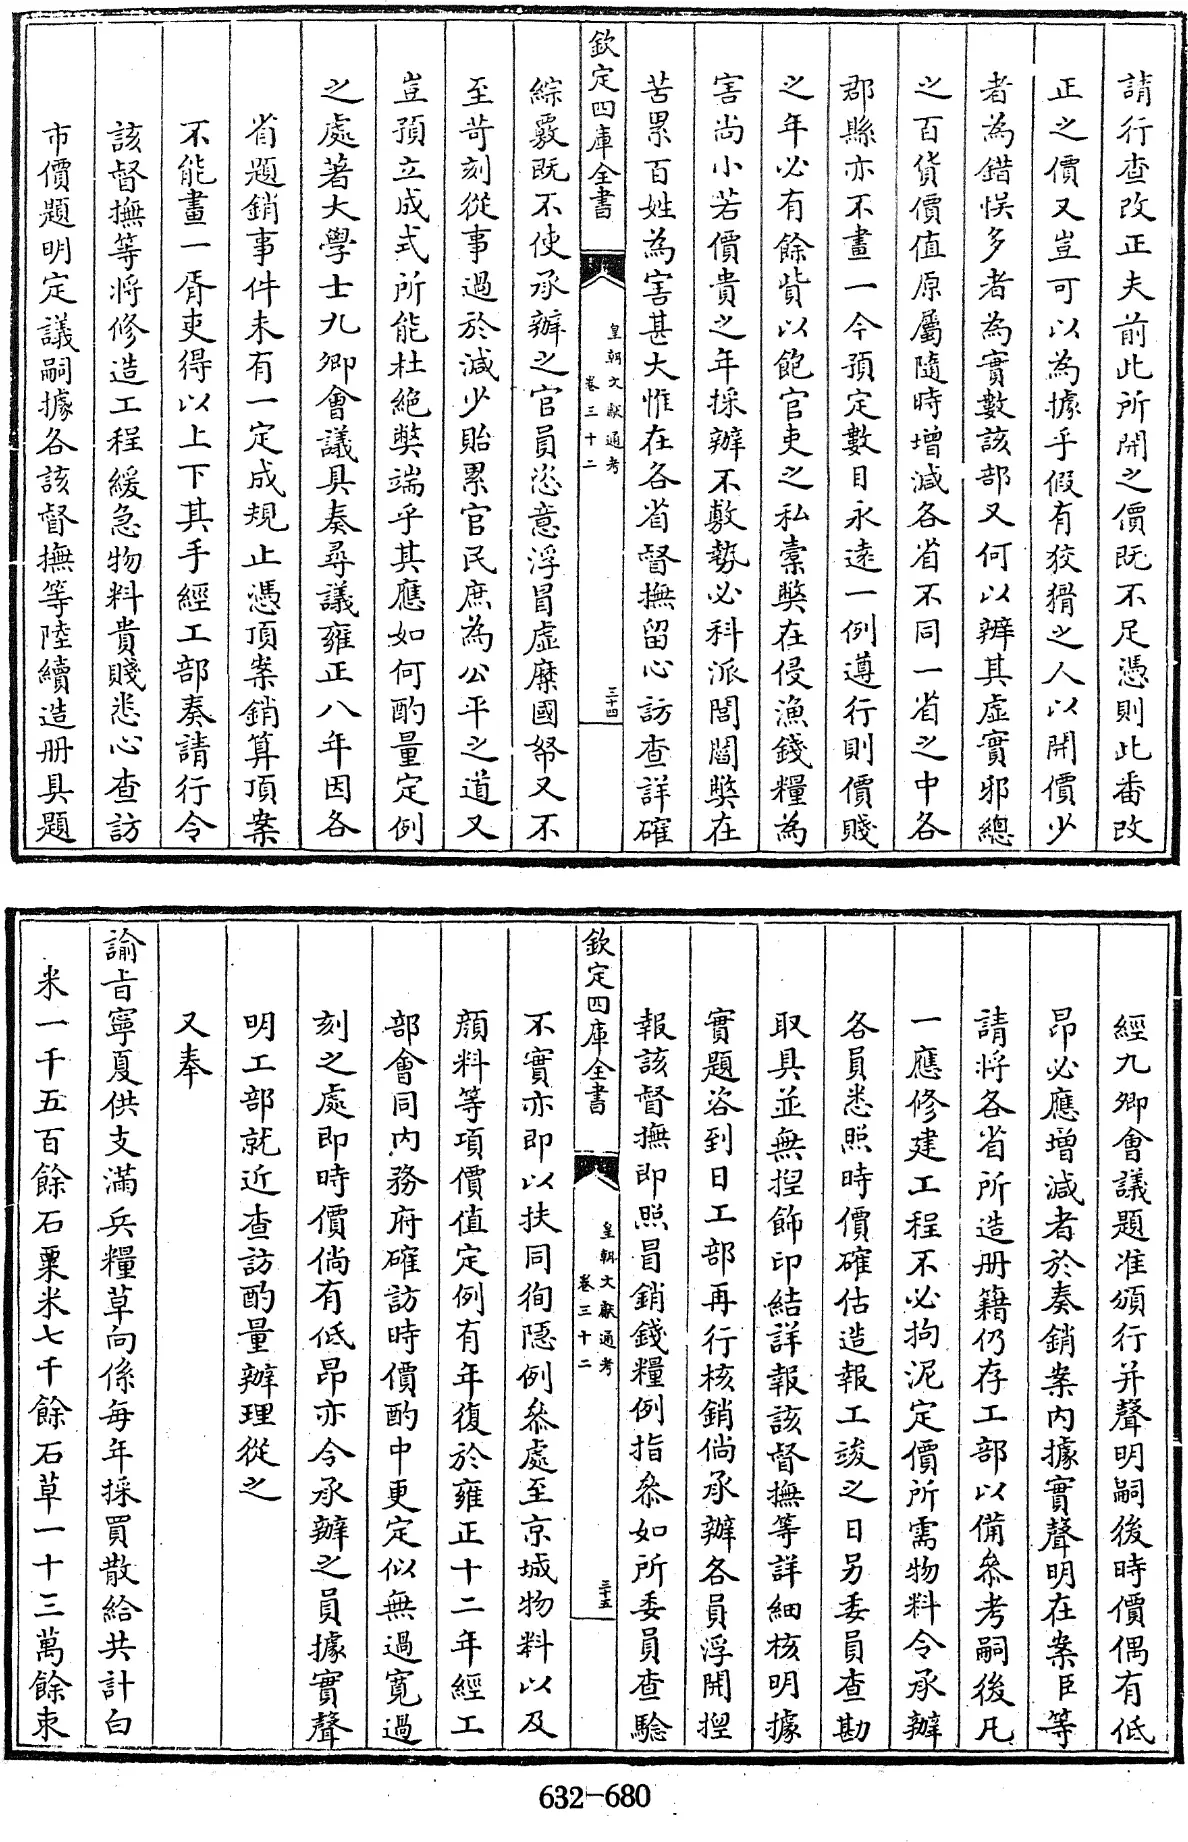 請行查改正夫前此所開之價既不足憑則此番改
正之價又豈可以為據乎假有狡猾之人以開價少
者為錯悮多者為實數該部又何以辨其虛實邪總
之百貨價值原屬隨時增減各省不同一省之中各
郡縣亦不畫一今預定數目永遠一例遵行則價賤
之年必有餘貲以飽官吏之私橐弊在侵漁錢糧為
害尚小若價貴之年採辦不敷勢必科派閭閻弊在
苦累百姓為害甚大惟在各省督撫留心訪查詳確
欽定四庫全書
皇朝文獻通考
卷三十二
三十四
綜覈既不使承辦之官員恣意浮冒虛糜國帑又不
至苛刻從事過於減少貽累官民庶為公平之道又
豈預立成式所能杜絶弊端乎其應如何酌量定例
之處著大學士九卿會議具奏尋議雍正八年因各
省題銷事件未有一定成規止憑頂案銷算頂案
不能畫一胥吏得以上下其手經工部奏請行令
該督撫等將修造工程緩急物料貴賤悉心查訪
市價題明定議嗣據各該督撫等陸續造册具題
經九卿會議題准頒行并聲明嗣後時價偶有低
昂必應增減者於奏銷案内據實聲明在案臣等
請將各省所造册籍仍存工部以備叅考嗣後凡
一應修建工程不必拘泥定價所需物料令承辦
各員悉照時價確估造報工竣之日另委員查勘
取具並無揑飾印結詳報該督撫等詳細核明據
實題咨到日工部再行核銷倘承辦各員浮開揑
報該督撫即照冒銷錢糧例指叅如所委員查驗
欽定四庫全書
皇朝文獻通考
卷三十二
三十五
不實亦即以扶同徇隱例叅處至京城物料以及
顔料等項價值定例有年復於雍正十二年經工
部會同内務府確訪時價酌中更定似無過寛過
刻之處即時價倘有低昂亦令承辦之員據實聲
明工部就近查訪酌量辦理從之
又奉
諭旨寧夏供支滿兵糧草向係每年採買散給共計白
米一千五百餘石粟米七千餘石草一十三萬餘束
632-680